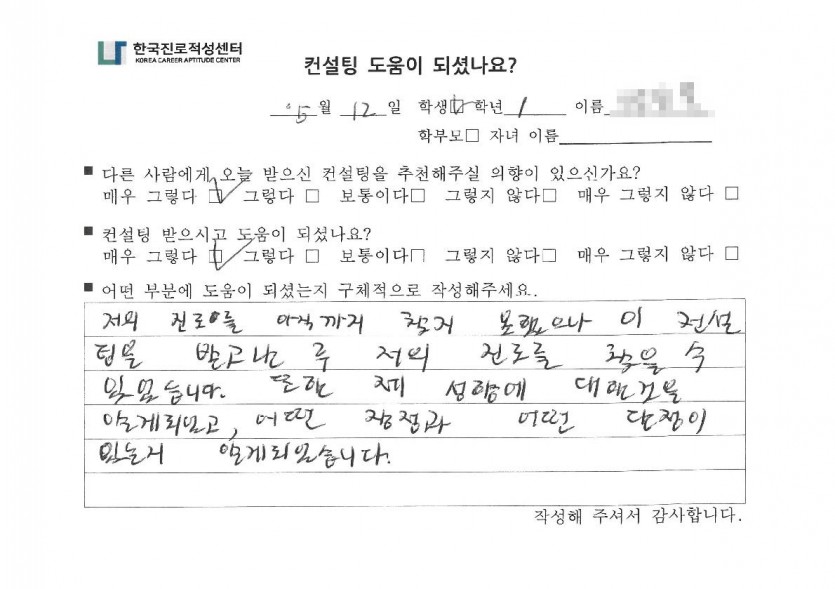 한국진로적성센터
KOREA CAREER APTITUDE CENTER
컨설팅 도움이 되셨나요?
5월 12일 학생☑ 학년 1 이름
학부모□ 자녀 이름
■ 다른 사람에게 오늘 받으신 컨설팅을 추천해주실 의향이 있으신가요?
매우 그렇다 ☑ 그렇다 □ 보통이다□ 그렇지 않다□ 매우 그렇지 않다 □
■ 컨설팅 받으시고 도움이 되셨나요?
매우 그렇다 ☑ 그렇다 □ 보통이다□ 그렇지 않다□ 매우 그렇지 않다 □
■ 어떤 부분에 도움이 되셨는지 구체적으로 작성해주세요.
저의 진로를 아직까지 찾지 못했으나 이 컨설
팅을 받고난 후 저의 진로를 찾을 수
있었습니다. 또한 제 성향에 대한것을
알게되었고, 어떤 장점과 어떤 단점이
있는지 알게되었습니다.
작성해 주셔서 감사합니다.